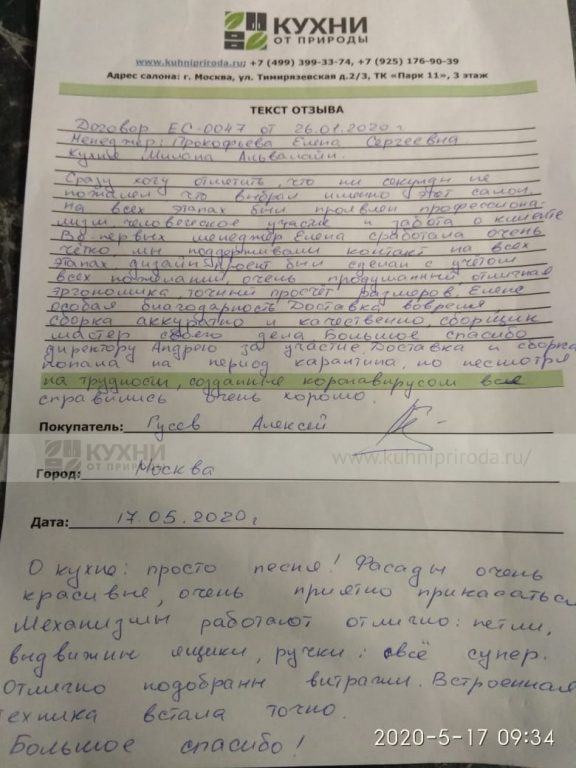 КУХНИ
ОТ ПРИРОДЫ
www.kuhnipriroda.ru; +7 (499) 399-33-74, +7 (925) 176-90-39
Адрес салона: г. Москва, ул. Тимирязевская д.2/3, ТК «Парк 11», 3 этаж
ТЕКСТ ОТЗЫВА
Договор ЕС-0047 от 26.01.2020г
Менеджер: Прокофьева Елена Сергеевна
Кухня Милона Альвалайн.
Сразу хочу отметить, что ни секунды не
пожалел что выбрал именно этот салон.
На всех этапах был проявлен профессиона-
лизм, человеческое участие и забота о клиенте
Во-первых менеджер Елена сработала очень
четко, мы поддерживали контакт на всех
этапах, дизайн проект был сделан с учетом
всех пожеланий, очень продуманный отличная
эргономика, точный просчет размеров. Елене
особая благодарность. Доставка вовремя
сборка аккуратно и качественно, сборщик
мастер своего дела. Большое спасибо
директору Андрею за участие. Доставка и сборка
попала на период карантина, но несмотря
на трудности, созданные коронавирусом все
справились очень хорошо.
Покупатель: Гусев Алексей
КУХНИ
ОТ ПРИРОДЫ
www.kuhnipriroda.ru/
Город: Москва
Дата: 17.05.2020г
О кухне: просто песня! Фасады очень
красивые, очень приятно прикасаться
Механизмы работают отлично: петли,
выдвижн ящики, ручки: всё супер.
Отлично подобранн витражи. Встроенная
техника встала точно.
Большое спасибо!
2020-5-17 09:34